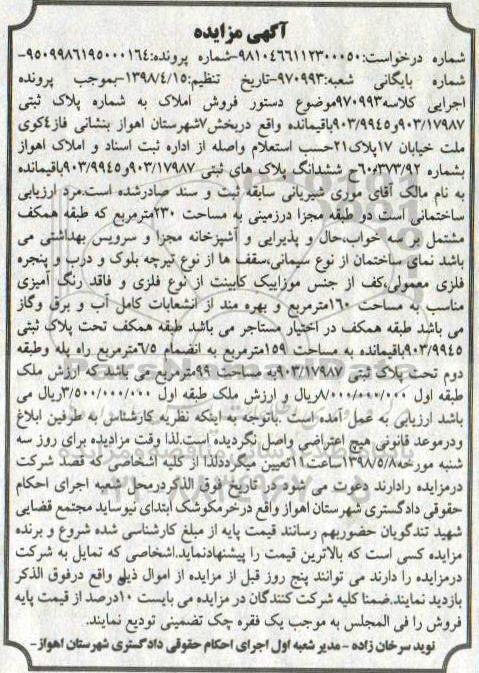 آگهی مزایده
شماره درخواست:۹۸۱۰۴۶۶۱۱۲۳۰۰۰۵۰-شماره پرونده:۹۵۰۹۹۸۶۱۹۵۰۰۰۱۶۴-
شماره بایگانی شعبه:۹۷۰۹۹۳-تاریخ تنظیم:۱۳۹۸/۴/۱۵-بموجب پرونده
اجرایی کلاسه۹۷۰۹۹۳موضوع دستور فروش املاک به شماره پلاک ثبتی
۹۰۳/۱۷۹۸۷و۹۰۳/۹۹۴۵باقیمانده واقع دربخش۷شهرستان اهواز بنشانی فاز۴کوی
ملت خیابان ۱۷پلاک۲۱حسب استعلام واصله از اداره ثبت اسناد و املاک اهواز
بشماره ۶۰۶۳۷۳/۹۲ح ششدانگ پلاک های ثبتی ۹۰۳/۱۷۹۸۷و۹۰۳/۹۹۴۵باقیمانده
به نام مالک آقای موری شیریانی سابقه ثبت و سند صادرشده است.مرد ارزیابی
ساختمانی است دو طبقه مجزا درزمینی به مساحت ۲۳۰مترمربع که طبقه همکف
مشتمل بر سه خواب،حال و پذیرایی و آشپزخانه مجزا و سرویس بهداشتی می
باشد نمای ساختمان از نوع سیمانی،سقف ها از نوع تیرچه بلوک و درب و پنجره
فلزی معمولی،کف از جنس موزاییک کابینت از نوع فلزی و فاقد رنگ آمیزی
مناسب به مساحت ۱۶۰مترمربع و بهره مند از انشعابات کامل آب و برق وگاز
می باشد طبقه همکف در اختیار مستاجر می باشد طبقه همکف تحت پلاک ثبتی
۹۰۳/۹۹۴۵باقیمانده به مساحت ۱۵۹مترمربع به انضمام ۶/۵مترمربع راه پله وطبقه
دوم تحت پلاک ثبتی ۹۰۳/۱۷۹۸۷به مساحت ۹۹مترمربع می باشد که ارزش ملک
طبقه اول ۸/۰۰۰/۰۰۰/۰۰۰ریال و ارزش ملک طبقه اول ۳/۵۰۰/۰۰۰/۰۰۰ریال می
باشد ارزیابی به عمل آمده است .باتوجه به اینکه نظریه کارشناس به طرفین ابلاغ
ودرموعد قانونی هیچ اعتراضی واصل نگردیده است.لذا وقت مزادیده برای روز سه
شنبه مورخه۱۳۹۸/۵/۸ساعت۱۱تعیین میگرددلذا از کلیه اشخاصی که قصد شرکت
درمزایده رادارند دعوت می شود در تاریخ فوق الذکردرمحل شعبه اجرای احکام
حقوقی دادگستری شهرستان اهواز واقع درخرمکوشک ابتدای نیوساید مجتمع قضایی
شهید تندگویان حضوربهم رسانند قیمت پایه از مبلغ کارشناسی شده شروع و برنده
مزایده کسی است که بالاترین قیمت را پیشنهادنماید.اشخاصی که تمایل به شرکت
درمزایده را دارند می توانند پنج روز قبل از مزایده از اموال ذیل واقع درفوق الذکر
بازدید نمایند.ضمنا کلیه شرکت کنندگان در مزایده می بایست ۱۰درصد از قیمت پایه
فروش را فی المجلس به موجب یک فقره چک تضمینی تودیع نمایند.
نوید سرخان زاده - مدیر شعبه اول اجرای احکام حقوقی دادگستری شهرستان اهواز-